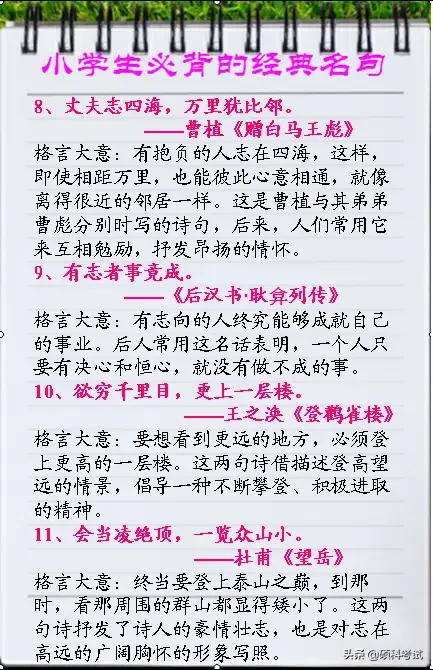 小学生必背的经典名句
8、丈夫志四海，万里犹比邻。
——曹植《赠白马王彪》
格言大意：有抱负的人志在四海，这样，
即使相距万里，也能彼此心意相通，就像
离得很近的邻居一样。这是曹植与其弟弟
曹彪分别时写的诗句，后来，人们常用它
来互相勉励，抒发昂扬的情怀。
9、有志者事竟成。
——《后汉书·耿弇列传》
格言大意：有志向的人终究能够成就自己
的事业。后人常用这名话表明，一个人只
要有决心和恒心，就没有做不成的事。
10、欲穷千里目，更上一层楼。
——王之涣《登鹳雀楼》
格言大意：要想看到更远的地方，必须登
上更高的一层楼。这两句诗借描述登高望
远的情景，倡导一种不断攀登、积极进取
的精神。
11、会当凌绝顶，一览众山小。
——杜甫《望岳》
格言大意：终当要登上泰山之巅，到那
时，看那周围的群山都显得矮小了。这两
句诗抒发了诗人的豪情壮志，也是对志在
高远的广阔胸怀的形象写照。
头条 @硕科考试